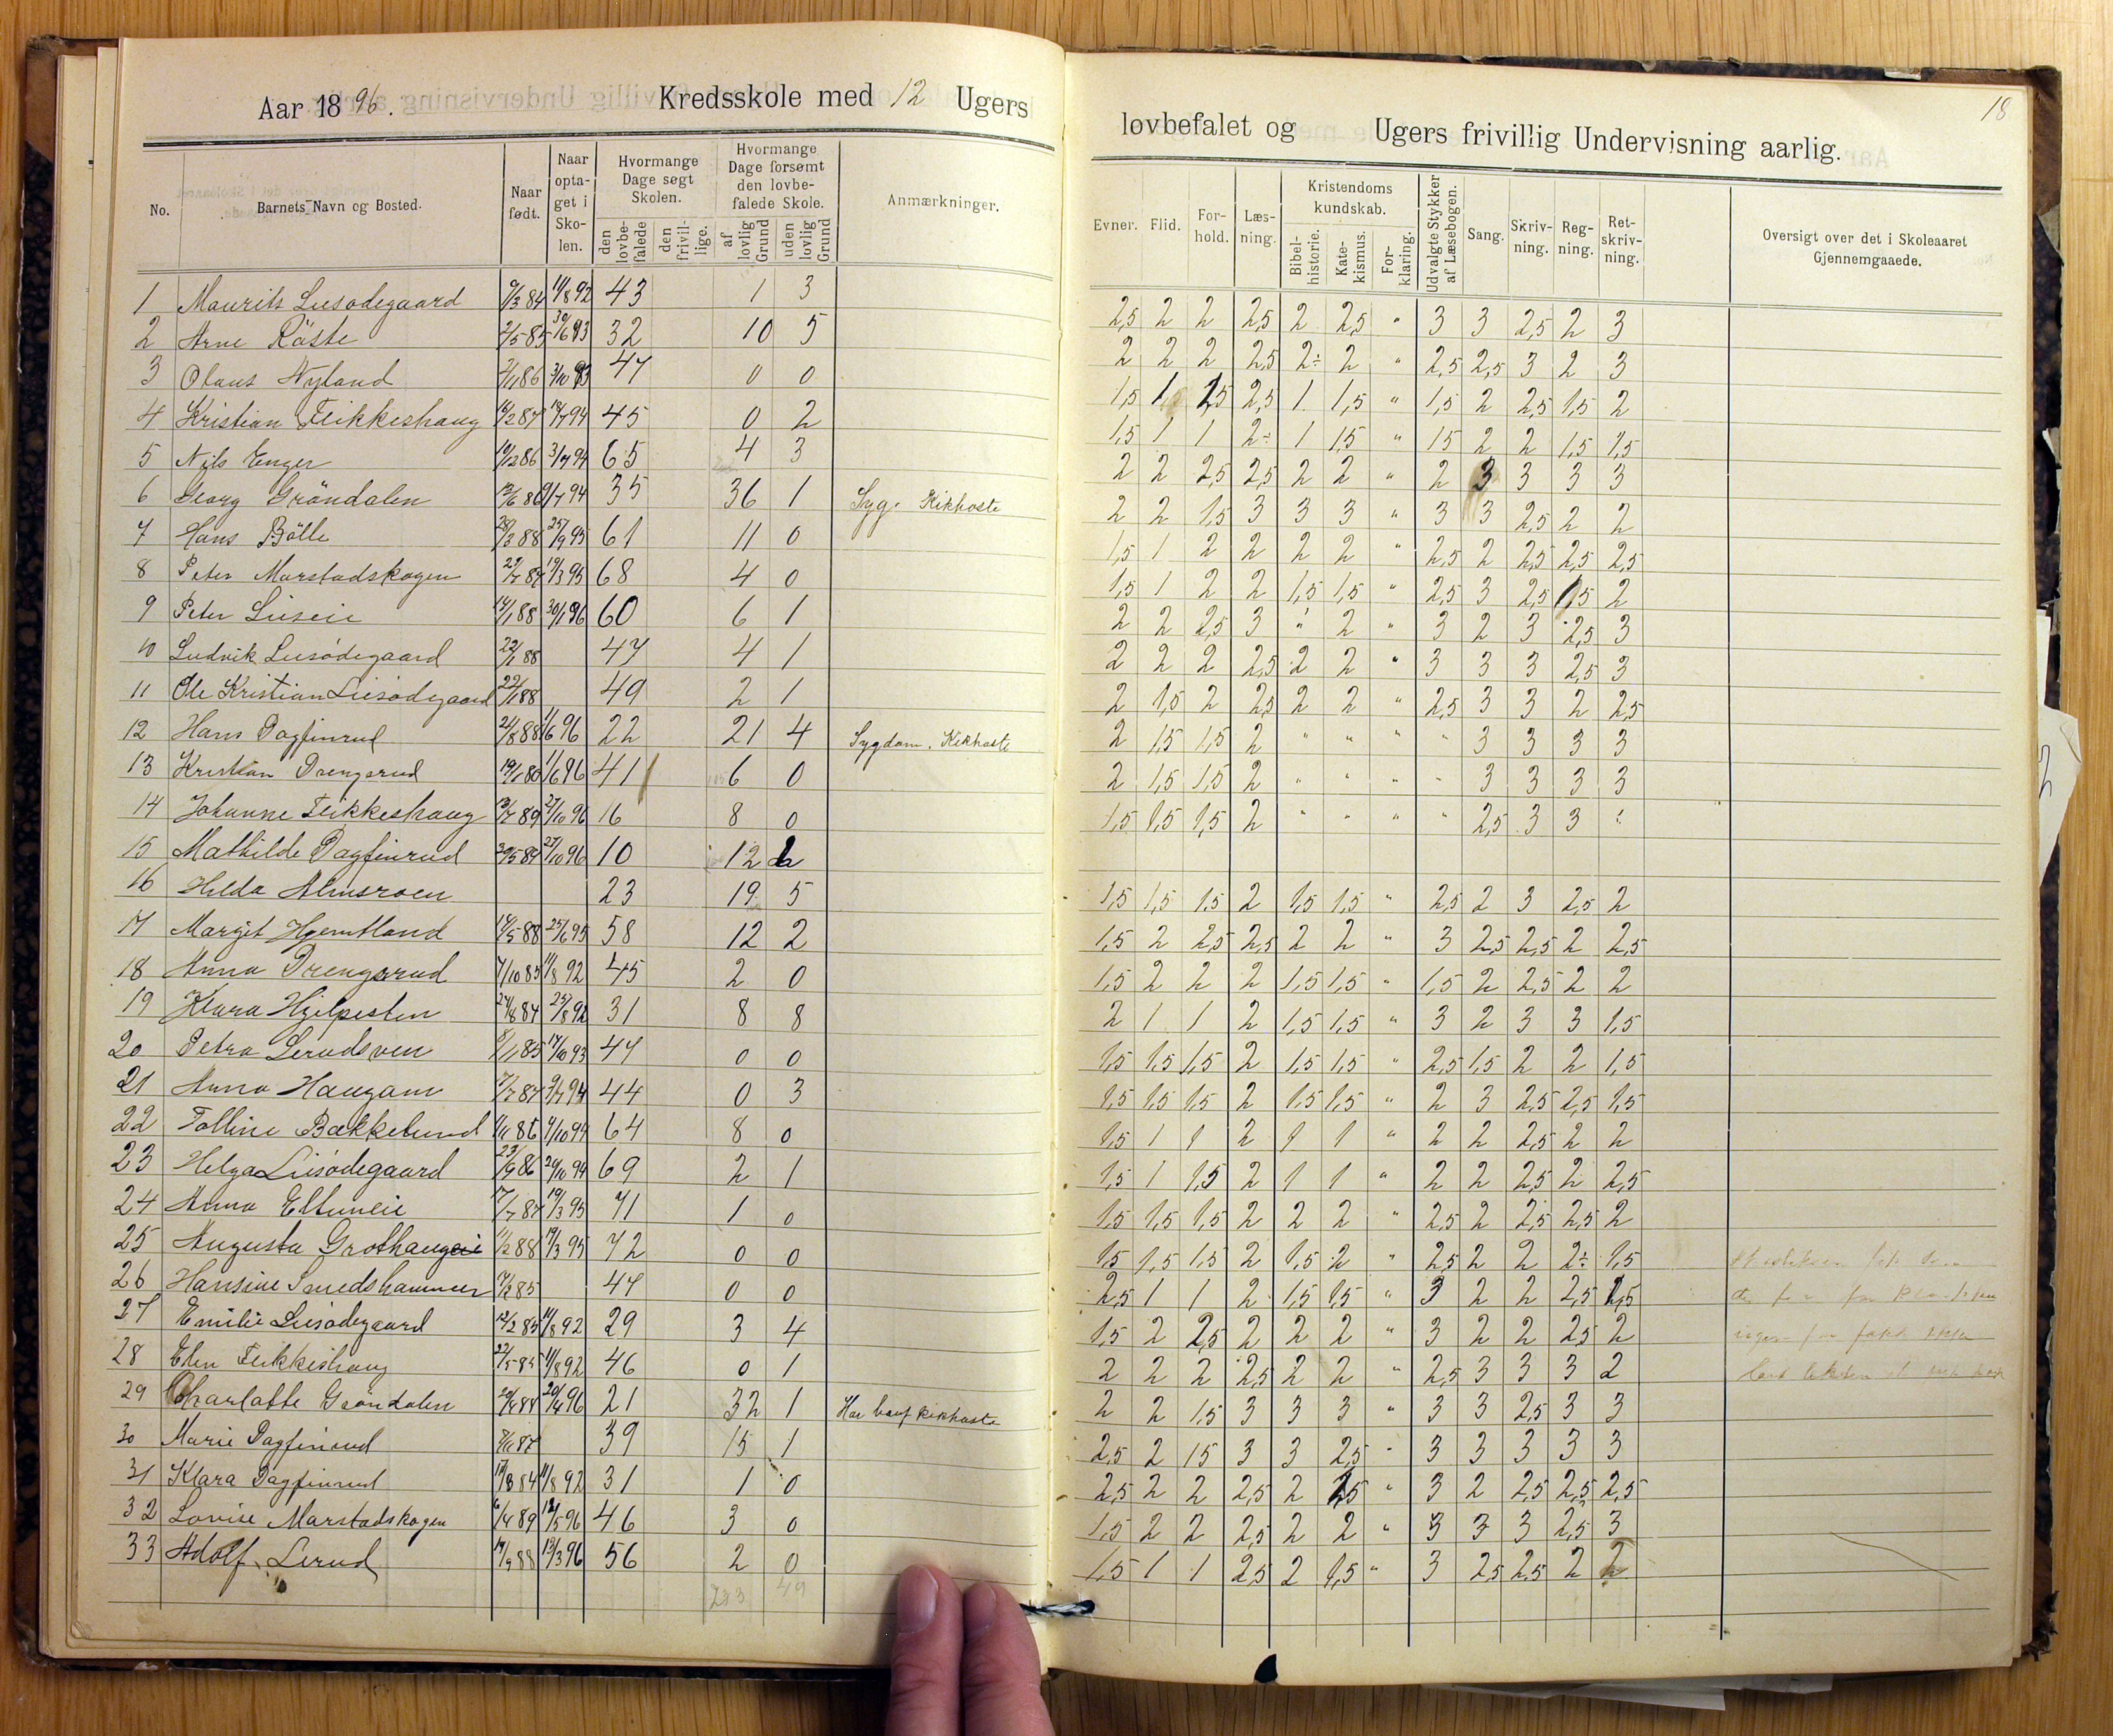 Aar 1896. Kredsskole med 12 Ugers
lovbefalet og Ugers frivillig Undervisning aarlig.
18
No. Barnets Navn og Bosted. Naar født. Naar optaget i Skolen. Hvormange Dage søgt Skolen. den lovbefalede den frivillige. Hvormange Dage forsømt den lovbefalede Skole. af lovlig Grund uden lovlig Grund Anmærkninger.
Evner. Flid. Forhold. Læsning. Kristendomskundskab. Bibelhistorie. Katekismus. Forklaring. Udvalgte Stykker af Læsebogen. Sang. Skrivning. Regning. Retskrivning. Oversigt over det i Skoleaaret Gjennemgaaede.
1 Maurits Liesødegaard 9/3 84 11/8 92 43 1 3 2,5 2 2 2,5 2 2,5 " 3 3 2,5 2 3
2 Arne Röste 2/5 85 30/6 93 32 10 5 2 2 2 2,5 2÷ 2 " 2,5 2,5 3 2 3
3 Olaus Nyland 2/11 86 3/10 93 47 0 0 1,5 1 2,5 2,5 1 1,5 " 1,5 2 2,5 1,5 2
4 Kristian Flikkeshaug 16/2 87 18/7 94 45 0 2 1,5 1 1 2÷ 1 1,5 " 1,5 2 2 1,5 1,5
5 Nils Enger 19/12 86 3/7 94 65 4 3 2 2 2,5 2,5 2 2 " 2 3 3 3 3
6 Georg Gröndalen 13/6 86 9/7 94 35 36 1 Syg. Kikhoste 2 2 1,5 3 3 3 " 3 3 2,5 2 2
7 Hans Bölle 28/3 88 25/9 95 61 11 0 1,5 1 2 2 2 2 " 2,5 2 2,5 2,5 2,5
8 Peter Marstadskogen 29/7 87 19/3 95 68 4 0 1,5 1 2 2 1,5 1,5 " 2,5 3 2,5 1,5 2
9 Peter Lieseie 14/1 88 30/1 96 60 6 1 2 2 2,5 3 " 2 " 3 2 3 2,5 3
10 Ludvik Liesødegaard 22/1 88 47 4 1 2 2 2 2,5 2 2 " 3 3 3 2,5 3
11 Ole Kristian Liesødegaard 22/1 88 49 2 1 2 1,5 2 2,5 2 2 " 2,5 3 3 2 2,5
12 Hans Dagfinrud 24/8 88 1/6 96 22 21 4 Sygdom. Kikhoste 2 1,5 1,5 2 " " " " 3 3 3 3
13 Kristian Drengsrud 19/1 80 1/6 96 41 6 0 2 1,5 1,5 2 " " " " 3 3 3 3
14 Johanne Flikkeshaug 13/7 89 27/10 96 16 8 0 1,5 1,5 1,5 2 " " " " 2,5 3 3 "
15 Mathilde Dagfinrud 20/5 84 27/10 96 10 12 2
16 Hilda Almsroen 23 19 5 1,5 1,5 1,5 2 1,5 1,5 " 2,5 2 3 2,5 2
17 Margit Hjemtland 14/5 88 25/6 95 58 12 2 1,5 2 2,5 2,5 2 2 " 3 2,5 2,5 2 2,5
18 Anna Drengsrud 7/10 85 11/8 92 45 2 0 1,5 2 2 2 1,5 1,5 " 1,5 2 2,5 2 2
19 Klara Hjelpesten 24/8 84 25/8 92 31 8 8 2 1 1 2 1,5 1,5 " 3 2 3 3 1,5
20 Petra Lerudsven 8/1 85 17/10 93 47 0 0 1,5 1,5 1,5 2 1,5 1,5 " 2,5 1,5 2 2 1,5
21 Anna Haugom 7/7 87 9/7 94 44 0 3 1,5 1,5 1,5 2 1,5 1,5 " 2 3 2,5 2,5 1,5
22 Tolline Bækkelund 1/11 86 4/10 94 64 8 0 1,5 1 1 2 1 1 " 2 2 2,5 2 2
23 Helga Liesødegaard 23/9 86 29/10 94 69 2 1 1,5 1 1,5 2 1 1 " 2 2 2,5 2 2,5
24 Anna Eltuneie 17/7 87 19/3 95 71 1 0 1,5 1,5 1,5 2 2 2 " 2,5 2 2,5 2,5 2
25 Augusta Grothaug 11/2 88 19/3 95 72 0 0 1,5 1,5 1,5 2 1,5 2 " 2,5 2 2 2÷ 1,5
26 Hansine Smedshammer 7/2 85 47 0 0 2,5 1 1 2 1,5 1,5 " 3 2 2 2,5 2,5
27 Emilie Liesødegaard 12/2 85 11/8 92 29 3 4 1,5 2 2,5 2 2 2 " 3 2 2 2,5 2
28 Elen Flikkeshaug 22/5 85 11/8 92 46 0 1 2 2 2 2,5 2 2 " 2,5 3 3 3 2
29 Charlotte Gröndalen 20/4 84 20/4 96 21 32 1 Har havt kikhoste 2 2 1,5 3 3 3 " 3 3 2,5 3 3
30 Marie Dagfinrud 2/11 87 39 15 1 2,5 2 1,5 3 3 2,5 " 3 3 3 3 3
31 Klara Dagfinrud 17/8 84 11/8 92 31 1 0 2,5 2 2 2,5 2 2,5 " 3 2 2,5 2,5 2,5
32 Lovise Marstadskogen 6/4 89 12/5 96 46 3 0 1,5 2 2 2,5 2 2 " 3 3 3 2,5 3
33 Adolf Lerud 14/9 88 13/3 96 56 2 0 1,5 1 1 2,5 2 1,5 " 3 2,5 2,5 2 2
233 49